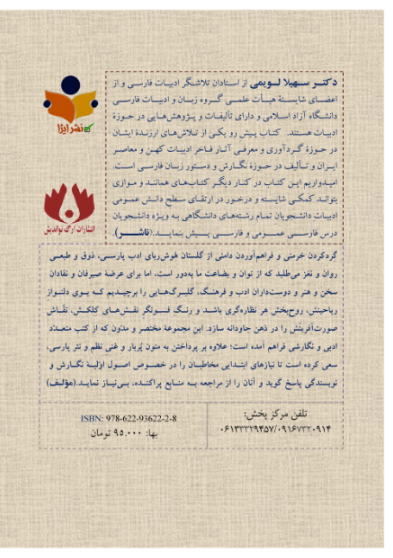 دکتـر سـهیلا لـویمی از اسـتادان تلاشـگر ادبیـات فارسـی و از
اعضـای شایسـتهٔ هیـأت علمـی گـروه زبـان و ادبیـات فارسـی
دانشگاه آزاد اسلامی و دارای تألیفـات و پـژوهش‌هـایی در حـوزهٔ
ادبیات هسـتند. کتـاب پـیش رو یکـی از تـلاش‌هـای ارزنـدهٔ ایشـان
در حـوزهٔ گـردآوری و معرفـی آثـار فـاخر ادبیـات کهـن و معاصـر
ایـران و تـألیف در حـوزهٔ نگـارش و دسـتور زبـان فارسـی اسـت.
امیـدواریم ایـن کتـاب در کنـار دیگـر کتـاب‌هـای هماننـد و مـوازی
بتوانـد کمکـی شایسـته و درخـور در ارتقـای سـطح دانـش عمـومی
ادبیـات دانشـجویان تمـام رشـته‌های دانشـگاهی بـه ویـژه دانشـجویان
درس فارسـی عمـومی و فارسـی پـیش بنمایـد.(ناشـر).
نشر ایزا
انتشارات ارگ نواندیش
گردکردن خرمنی و فراهم‌آوردن دامنی از گلستان هوش‌ربای ادب پارسی، ذوق و طبعـی
روان و نغز می‌طلبد که از توان و بضاعت ما به‌دور است، اما برای عرضهٔ صیرفان و نقادان
سخن و هنر و دوست‌داران ادب و فرهنـگ، گلبـرگ‌هـایی را برچیـدیم کـه بـوی دلنـواز
ریاحینش، روح‌بخش هر نظاره‌گری باشد و رنـگ فسـونگر نقـش‌هـای کلکـش، نقّـاش
صورت‌آفرینش را در ذهن جاودانه سازد. این مجموعهٔ مختصر و مدّون که از کتب متعـدّد
ادبی و نگارشی فراهم آمده است؛ علاوه بر پرداختن به متون پُربار و غنی نظم و نثر پارسی،
سعی کرده است تا نیازهای ابتدایی مخاطبـان را در خصـوص اصـول اوّلیـهٔ نگـارش و
نویسندگی پاسخ گوید و آنان را از مراجعه بـه منـابع پراکنـده، بـی‌نیـاز نمایـد.(مؤلـف)
تلفن مرکز پخش:
۰۶۱۳۳۳۲۹۴۵۷/۰۹۱۶۷۳۲۰۹۱۴
ISBN: 978-622-93622-2-8
بها: ۹۵.۰۰۰ تومان